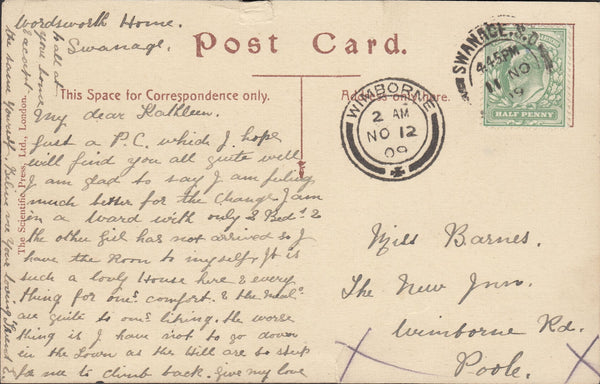 Wordsworth Home.
Swanage.
Post Card.
This Space for Correspondence only.
Address only here.
The Scientific Press, Ltd., London.
My dear Kathleen.
Just a P.C. which I hope
will find you all quite well
I am glad to say I am feeling
much better for the change I am
in a Ward with only 2 Beds &
the other Girl has not arrived so I
have the Room to myself, It is
such a lovly House here & every
thing for ones comfort. & the Meals
are quite to ones liking. the worse
thing is I have not to go down
in the Town as the Hill are so steep
for me to climb back. Give my love
to all at
your home
& accept
the same yourself, Believe me your loving Friend
Miss Barnes.
The New Inn.
Wimborne Rd.
Poole.
WIMBORNE
2 AM
NO 12
09
SWANAGE S.O
4.45PM
11 NO
09
HALF PENNY